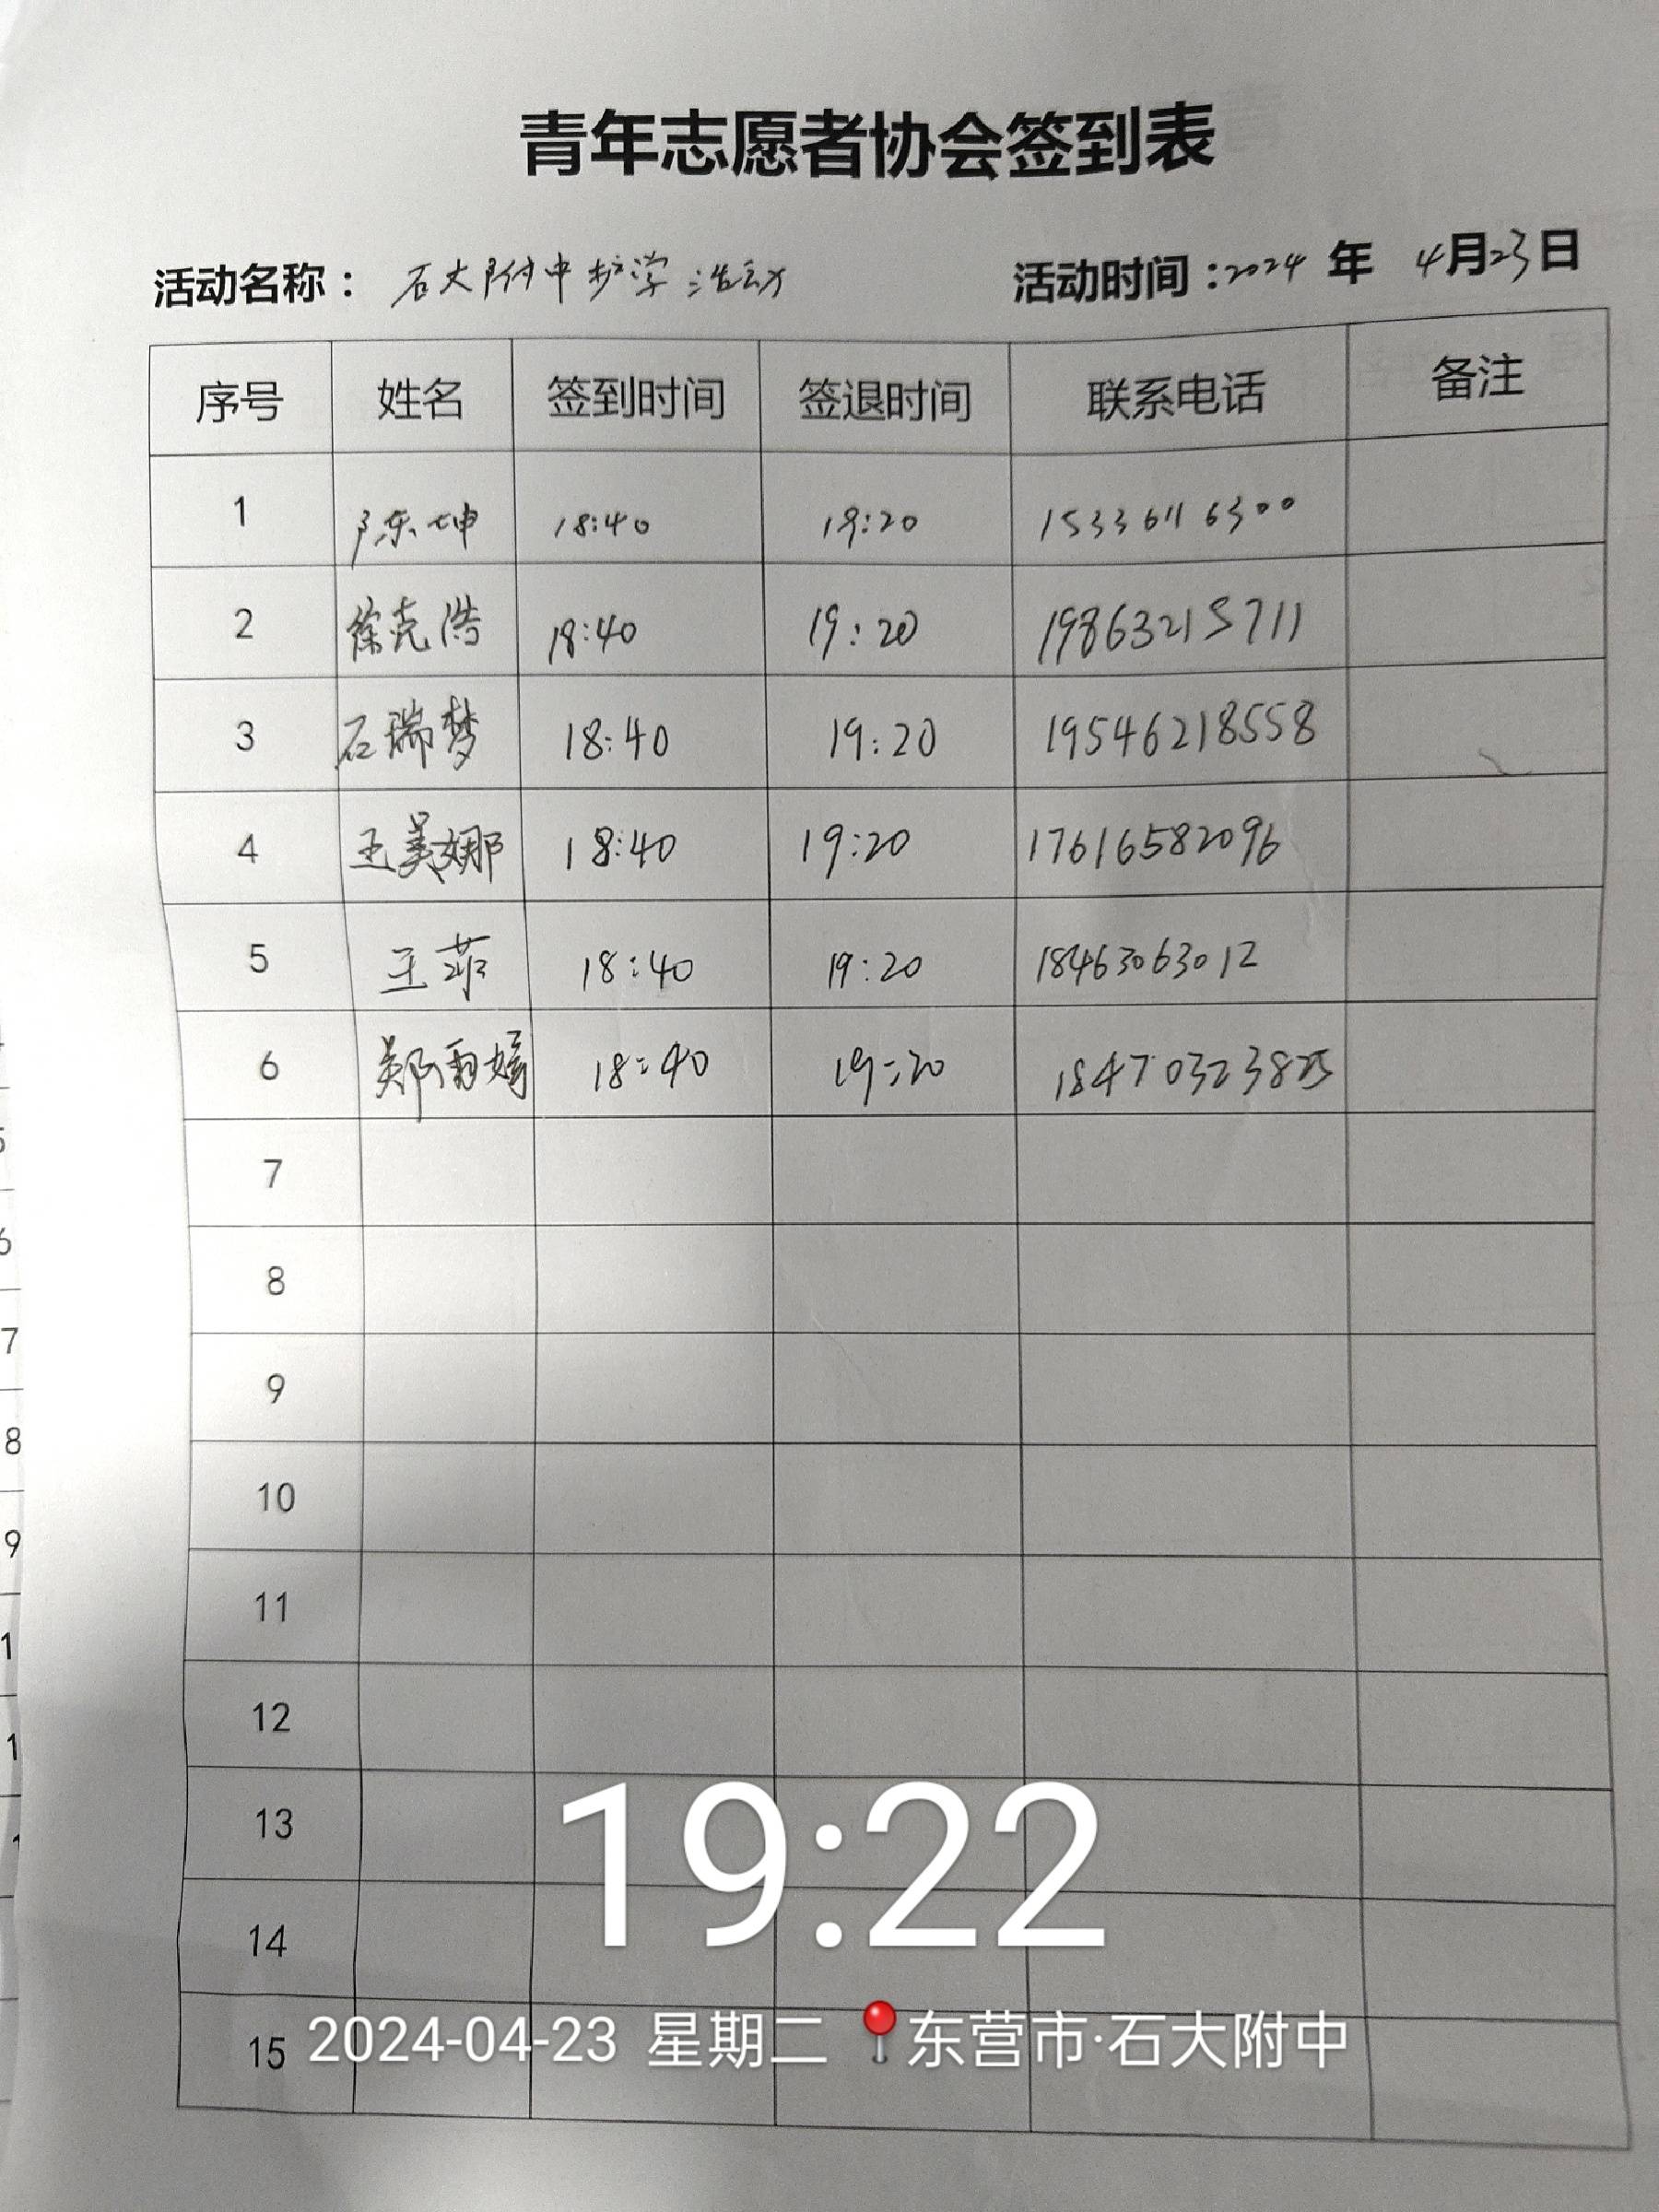 青年志愿者协会签到表
活动名称： 石大附中护学活动 活动时间：2024 年 4月23日
序号 姓名 签到时间 签退时间 联系电话 备注
1 陈坤 18:40 19:20 15336116300
2 徐克浩 18:40 19:20 19863215711
3 石瑞梦 18:40 19:20 19546218558
4 王美娜 18:40 19:20 17616582096
5 王菲 18:40 19:20 18463063012
6 郑雨嫣 18:40 19:20 18470323825
7
8
9
10
11
12
13
19:22
14
15
2024-04-23 星期二 东营市·石大附中
5
6
7
8
9
1
1